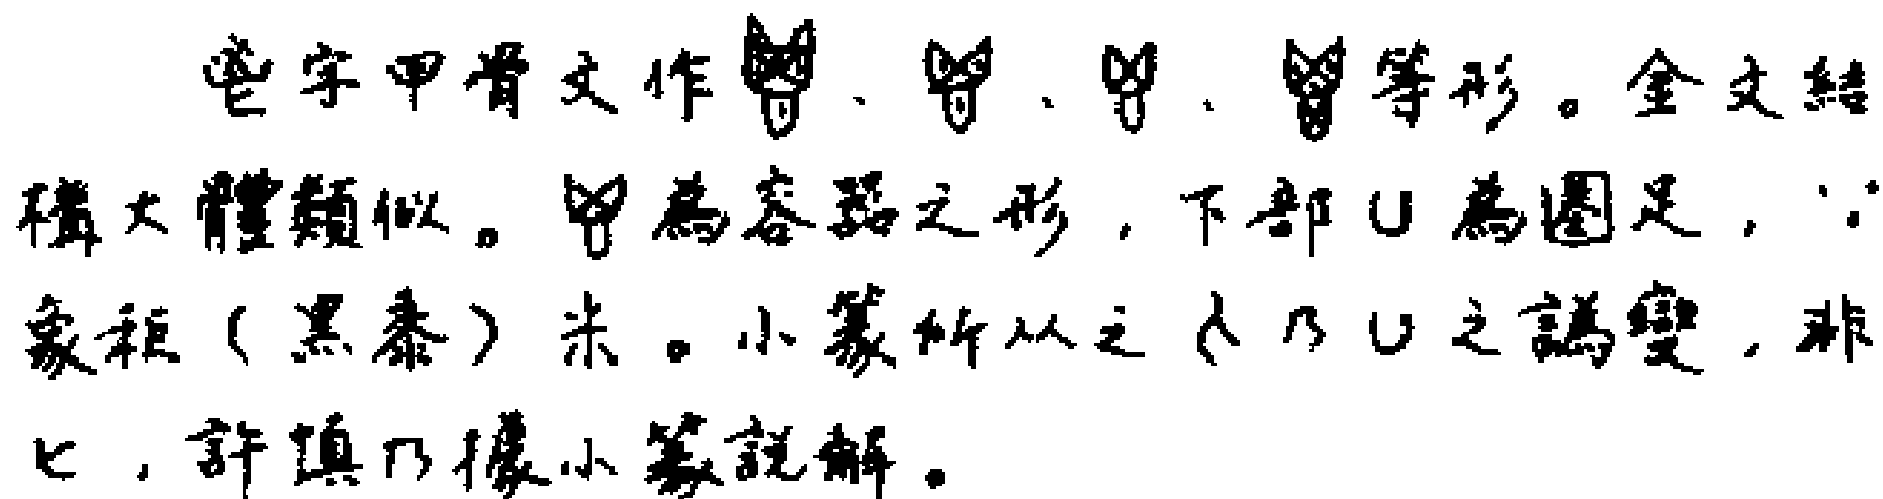 鬯字甲骨文作、、、等形。金文結
構大體類似。為容器之形，下部U為圈足，∵
象秬（黑黍）米。小篆所从之乃U之譌變，非
匕，許慎乃據小篆說解。